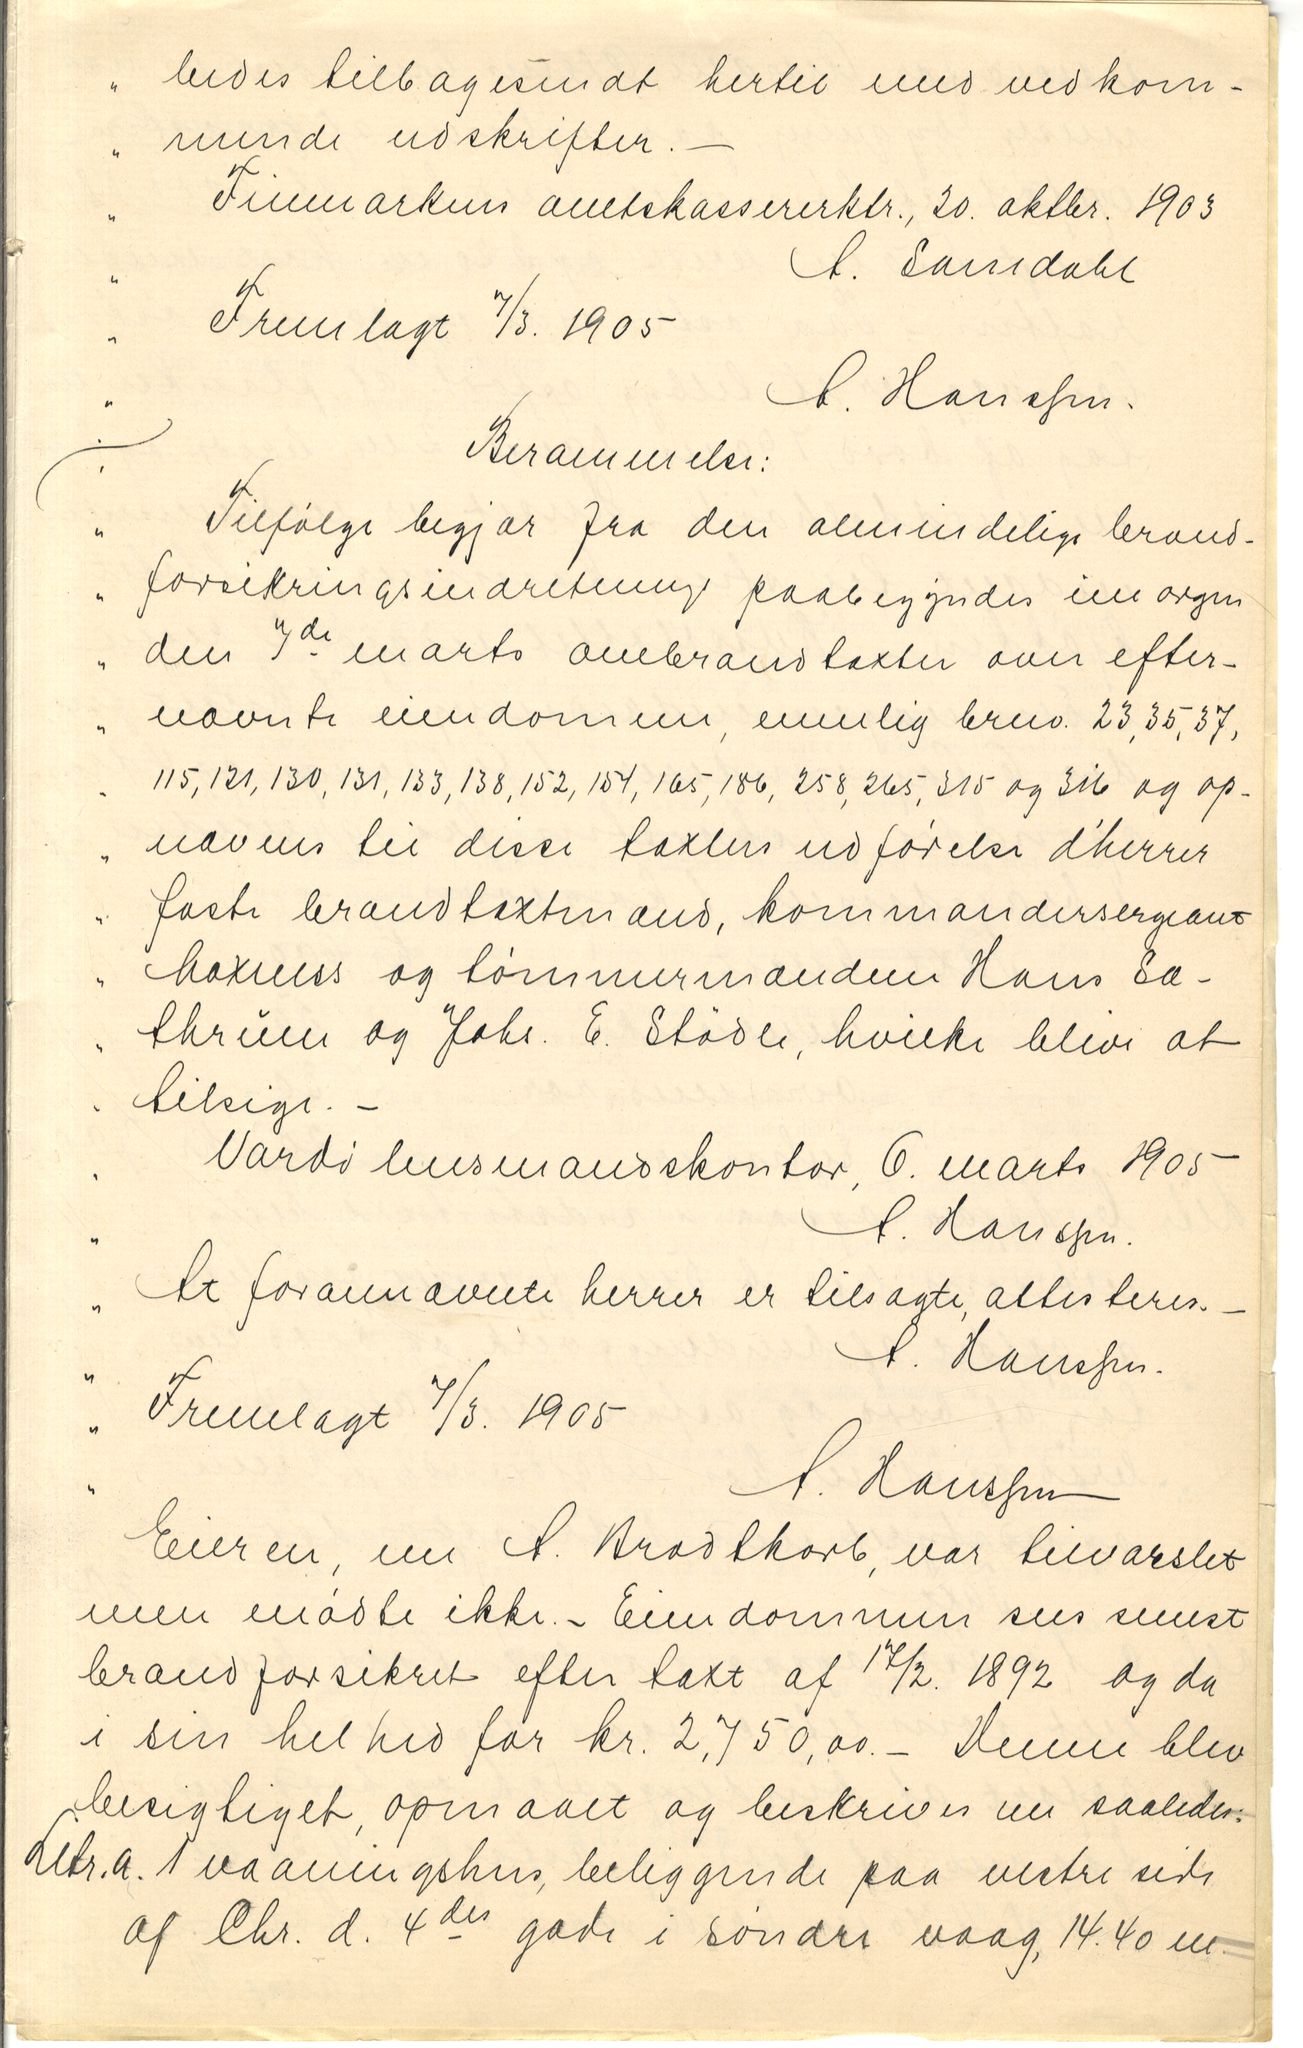 " ledes tilbagesendt hertil med vedkom-
" mende udskrifter. —
" Finmarkens amtskassererktr., 20. oktbr. 1903
" A. Samdahl
" Fremlagt 7/3. 1905
" A. Hanssen.
" Berammelse:
" Tilfølge begjær fra den almindelige brand-
" forsikringsindretning paabegyndes imorgen
" den 7de marts ombrandtaxter over efter-
" nævnte eiendomme, nemlig brno. 23, 35, 37,
" 115, 121, 130, 131, 133, 138, 152, 154, 165, 186, 258, 265, 315 og 316 og op-
" nævnes til disse taxters udførelse d'herrer
" faste brandtaxtmænd, kommandersergeant
" Maxness og tømmermændene Hans Sæ-
" thrum og Johs. E. Stødle, hvilke blive at
" tilsige. —
" Vardø lensmandskontor, 6. marts 1905
" A. Hanssen.
" At forannævnte herrer er tilsagte, attesteres. —
" A. Hanssen.
" Fremlagt 7/3. 1905
" A. Hanssen
Eieren, nu A. Brodtkorb, var tilvarslet
men mødte ikke. – Eiendommen sees senest
brandforsikret efter taxt af 17/2. 1892 og da
i sin helhed for kr. 2,750,00. – Denne blev
besigtiget, opmaalt og beskrives nu saaledes:
Litr. a. 1 vaaningshus, beliggende paa vestre side
af Chr. d. 4des gade i søndre vaag, 14.40 m.